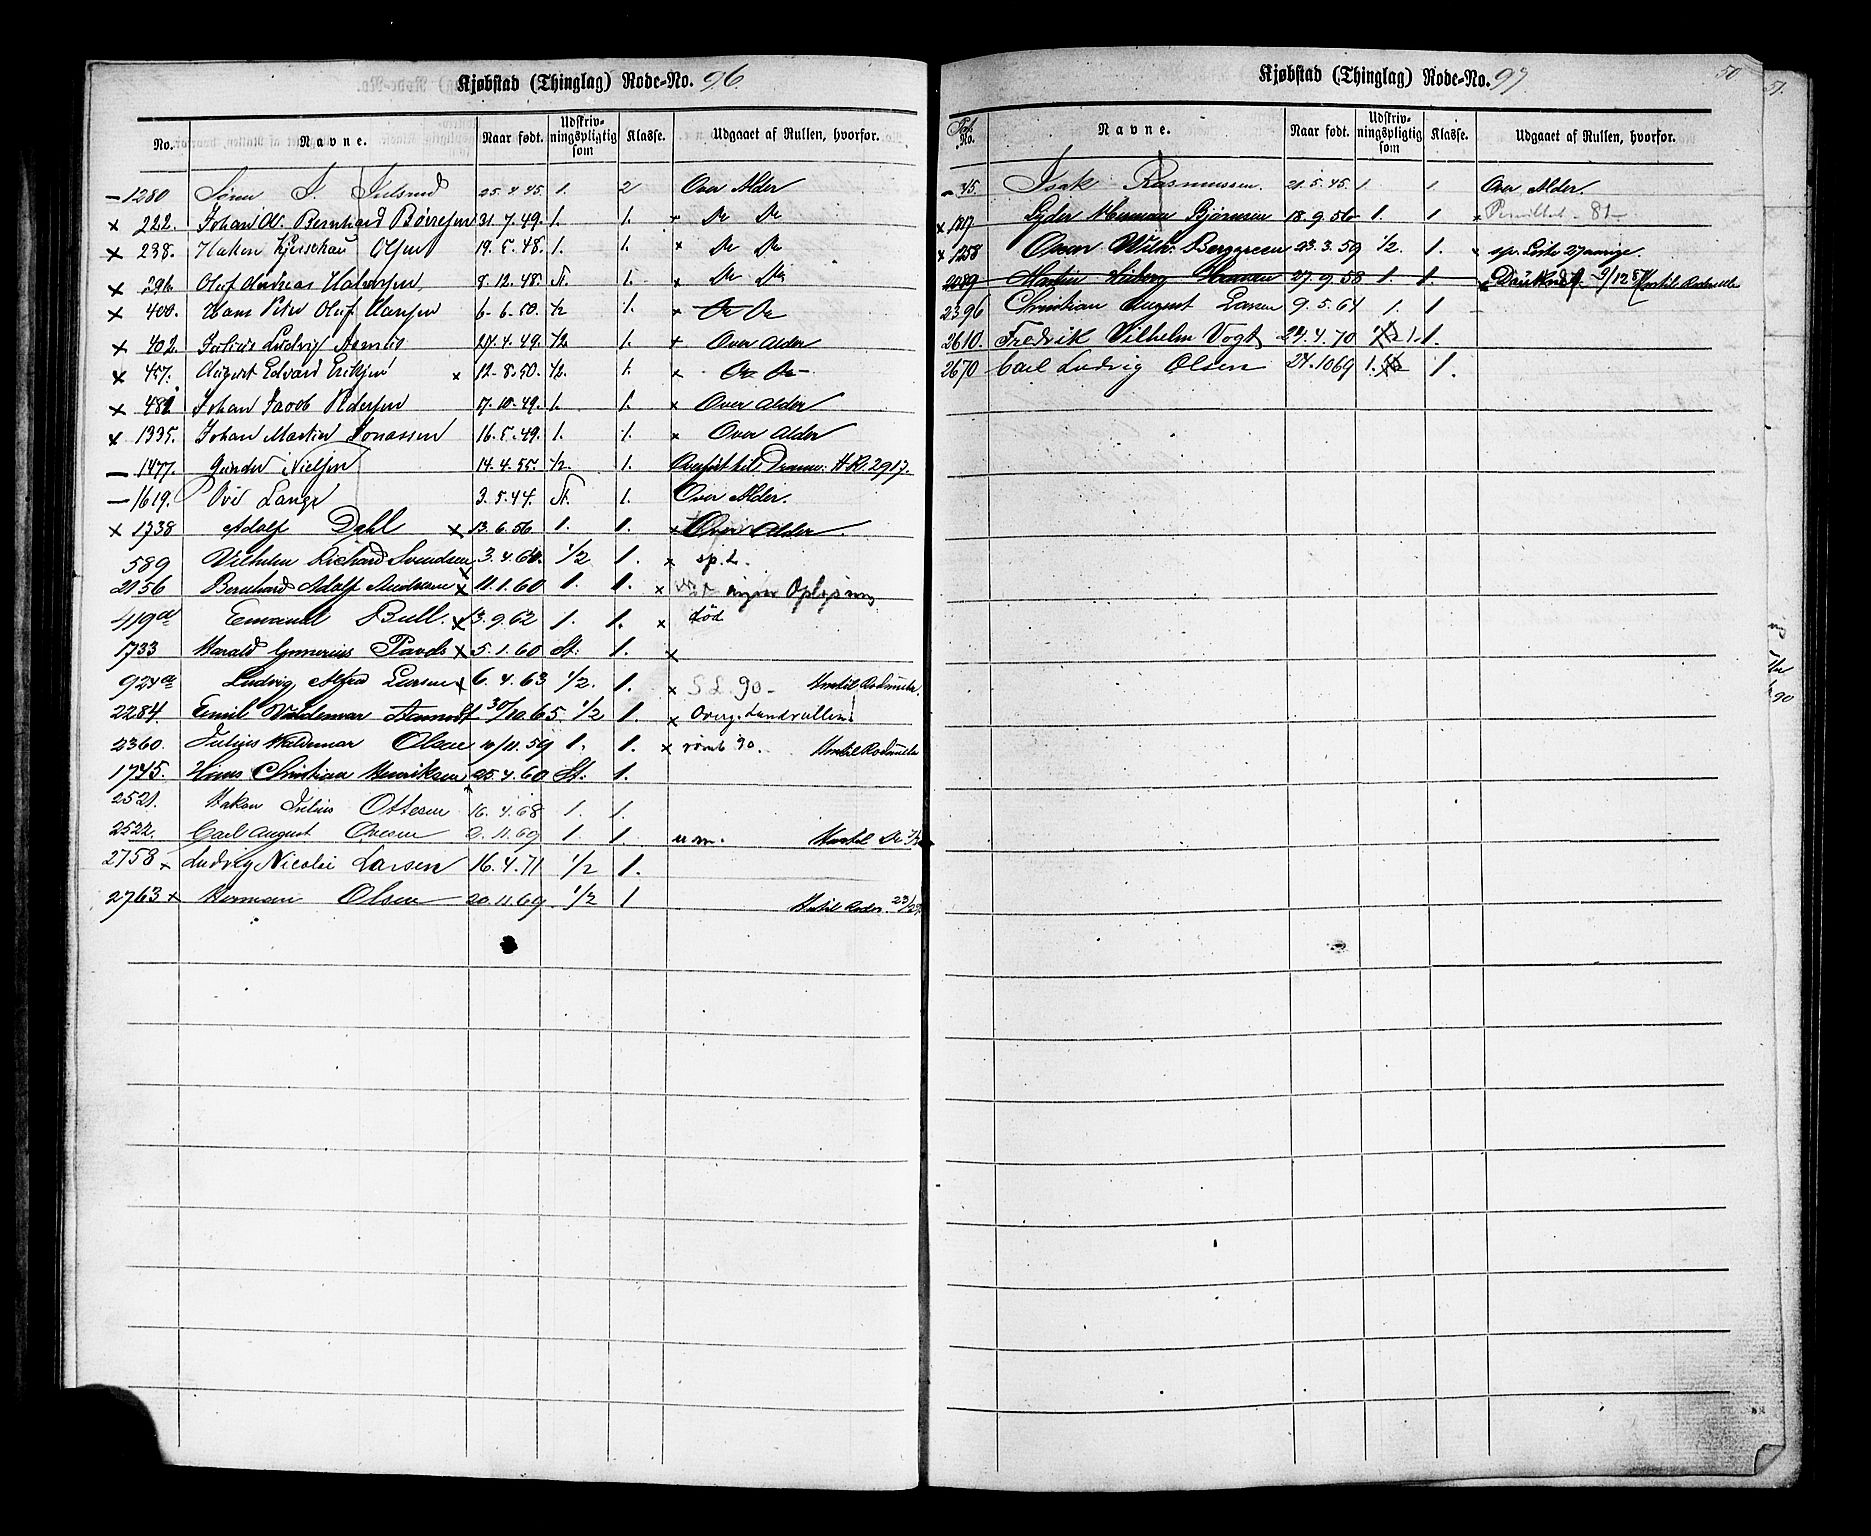 Kjøbstad (Thinglag) Rode-No. 96.
No. Navne. Naar født. Udskrivningspligtig som Klasse. Udgaaet af Rullen, hvorfor.
1280 Søren J. 25.4.45. 1. 2 Over Alder
x 222. Johan Ol. Bernhard Børresen 21.7.49. 1. 1. x Do Do
x 238. Haken Olsen 19.5.48. 1. 1. x Do Do
x 296. Oluf Andreas Halvorsen 8.12.48. St. 1. x Do Do
x 400. Hans Peter Oluf Hansen 6-6.50. 1/2 1. x Do Do
x 402. Julius Ludvig 27.4.49. 1/2. 1. x Over Alder
x 457. August Edvard Eriksen x 12-8.50. 1/2. 1. x Do Do
x 481. Johan Jacob Pedersen 17.10.49. 1. 1. x Over Alder
x 1335. Johan Martin Jonassen 16.5.49. 1. 1. x Over Alder
— 1477. Gunder Nielsen 14.4.55. 1/2. 1. Overført til Dramm: H.R. 2917.
— 1619. Ove Lange 3.5.44. St. 1. Over Alder.
x 1738 Adolf Dahl x 13.6.56 1. 1. x Over Alder.
589 Vilhelm Richard Svendsen 3.4.60. 1/2 1. x sp.L.
2156 Bernhard Adolf Andersen x 11.1.60 1. 1. x ingen Oplysning
419a Emanuel Bull. x 13.9.62 1. 1. x død
1733 Harald Gunerius x 5.1.60 St: 1. x
924a Ludvig Alfred Larsen x 6.4.63 1/2. 1. x S.L. 90-
2284. Emil Valdemar 30/10.65. 1/2 1. x Overg. Landrullen
2360. Julius Waldemar Olsen 10/11.59 1. 1. x rømt 90.
1745. Hans Christian Henriksen 25.4.60 St: 1.
2521. Hakon Julius Ottesen 16.4.68 1. 1.
2522. Carl August 2.11.69 1. 1
2758 x Ludvig Nicolai Larsen 16.4.71 1/2 1.
2763 x Herman Olsen 20.11.69 1/2 1
Kjøbstad (Thinglag) Rode-No. 97
50
No. Navne. Naar født. Udskrivningspligtig som Klasse. Udgaaet af Rullen, hvorfor.
— 45. Isak Rasmussen. 21.5.45. 1 1. Over Alder.
x 1317 Lyder Herman Bjørnsen 18.9.56 1. 1 x 81-
x 1258 Oscar Wilh. Berggreen 23.3.59 1/2. 1. x sp. Liste 27 aarige.
2089 Martin Hansen 27.9.58 1. 1.
2396 Christian August Larsen 9.5.61 1. 1
2610. Fredrik Vilhelm Vogt 29.4.70 1. 1.
2670 Carl Ludvig Olsen 24.10 69 1. 1.
51.